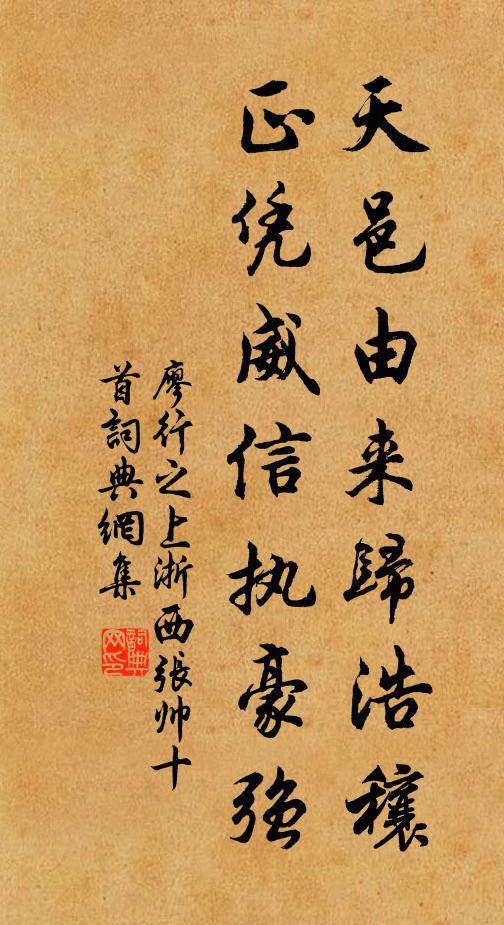 天邑由来歸浩穰
正凭威信执豪强
廖行之上浙西張帅十
首詞典網集
詞典网印